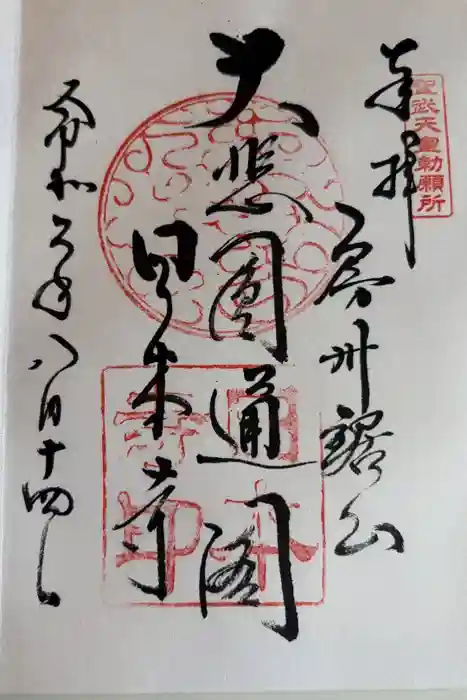 奉拝
聖武天皇勅願所
房州鋸山
大悲圓通閣
日本寺
令和 年八月十四日
日本
寺印